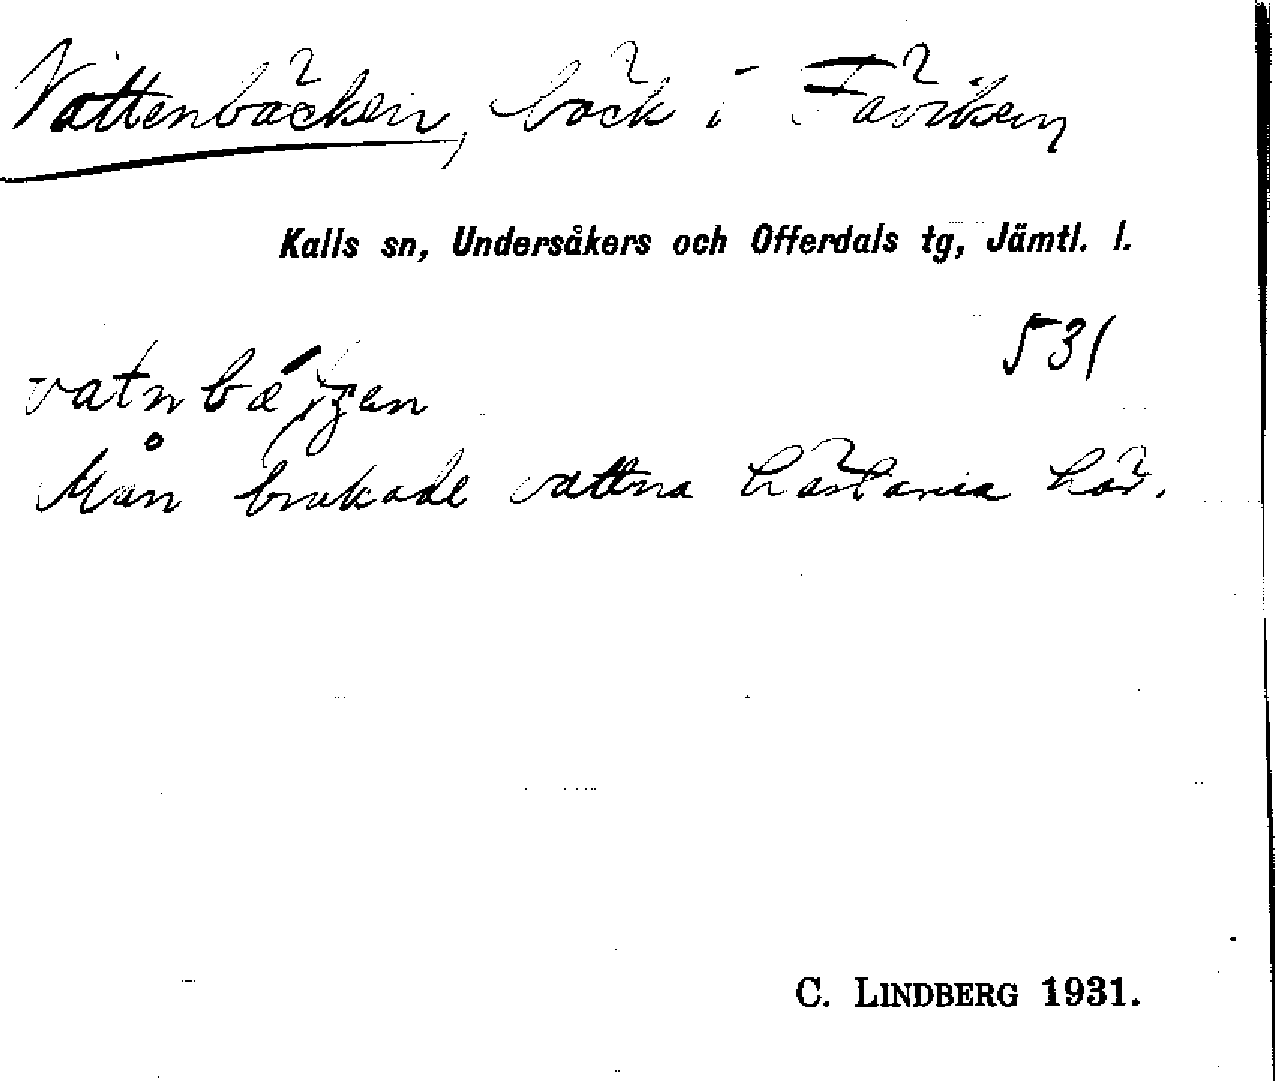 Vattenbäcken, bäck i Fäviken
Kalls sn, Undersåkers och Offerdals tg, Jämtl. l.
531
Man brukade vattna hästarna här.
C. LINDBERG 1931.